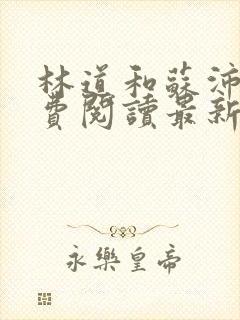 林道和蘇沛
費閱讀最新
永樂皇帝